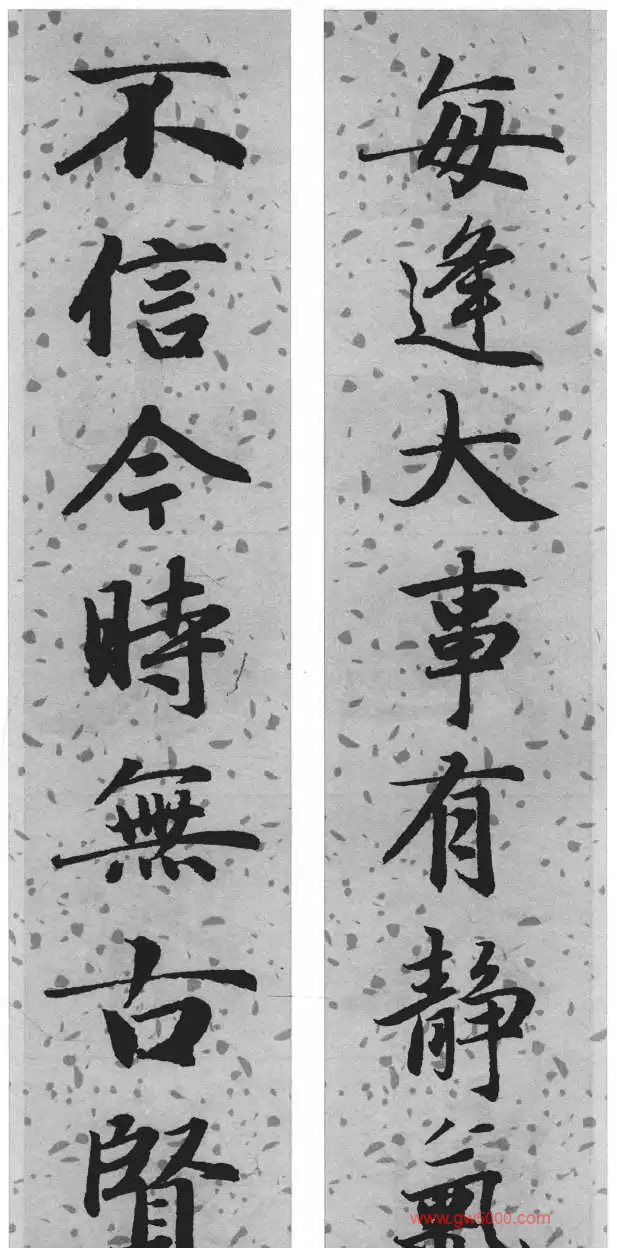 每逢大事有静氣
不信今時無古賢
www.gw5000.com